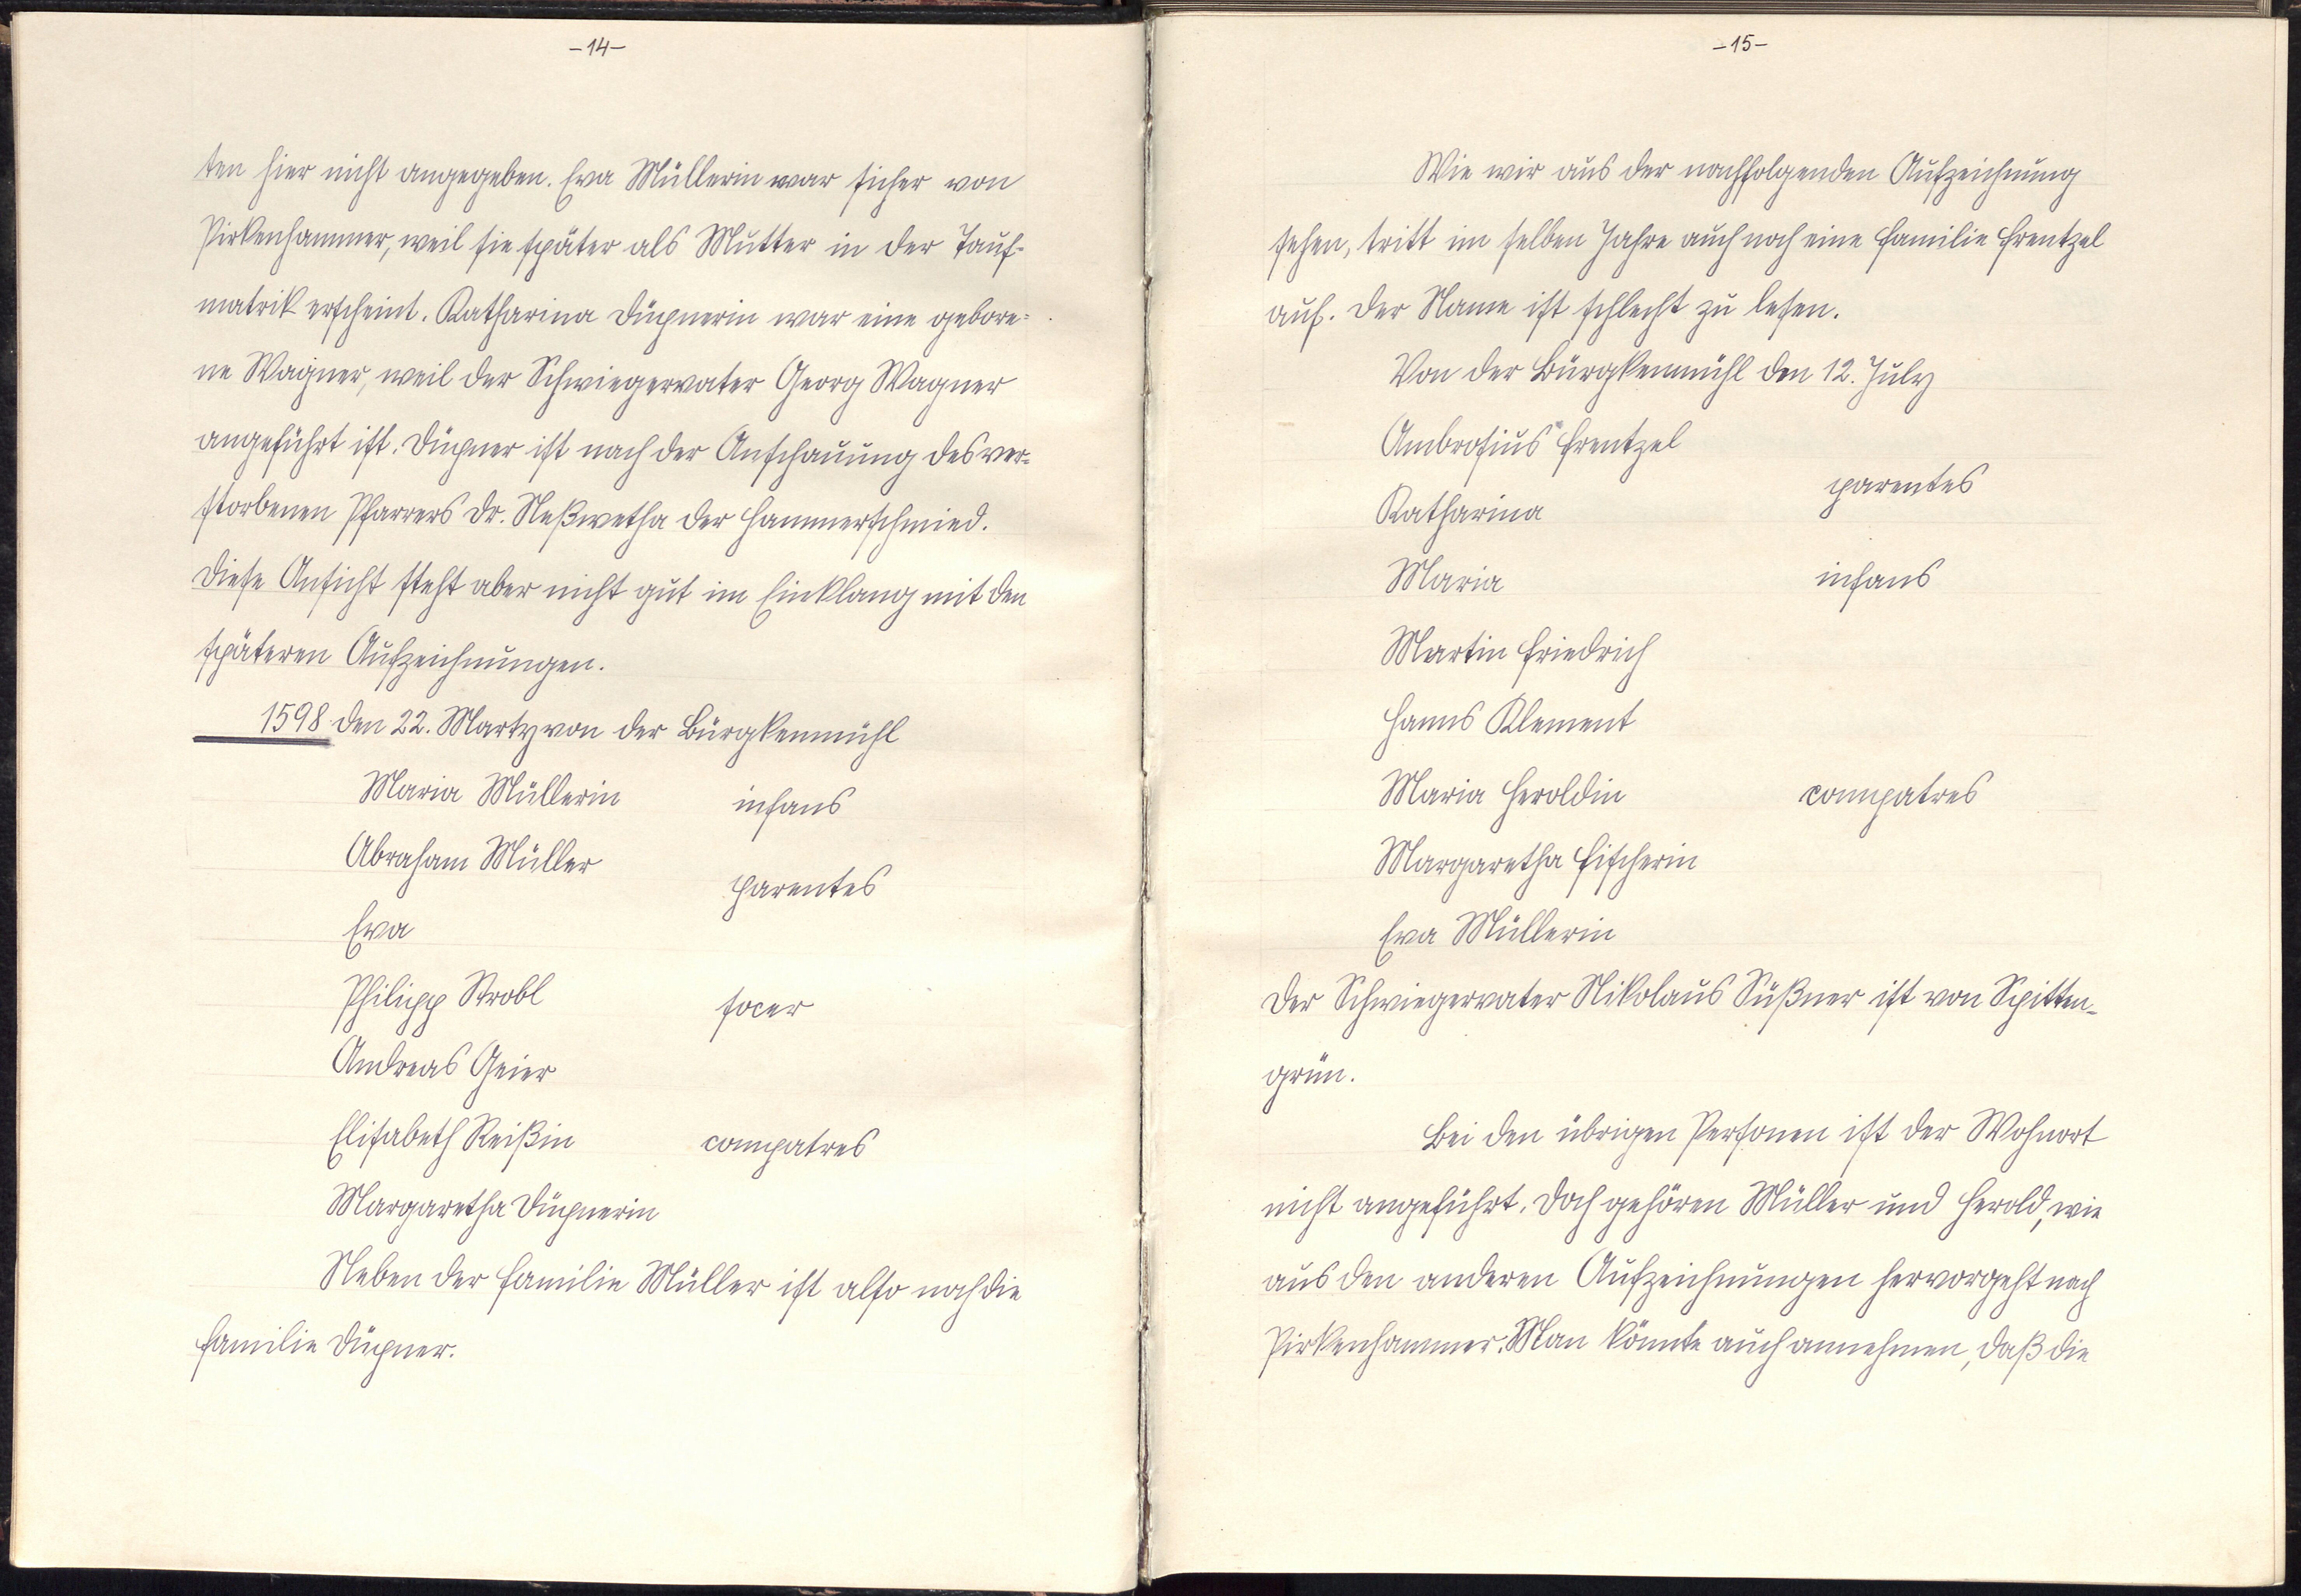 -14-
ten hier nicht angegeben. Eva Müllerin war sicher von
Pirkenhammer, weil sie später als Mutter in der Tauf-
matrik erscheint. Katharina Düpnerin war eine gebore-
ne Wagner, weil der Schwiegervater Georg Wagner
angeführt ist. Düpner ist nach der Anschauung des ver-
storbenen Pfarrers Dr. Neßwetha der Hammerschmied.
Diese Ansicht steht aber nicht gut im Einklang mit den
späteren Aufzeichnungen.
1598 den 22. Marty von der Bürgkenmühl
Maria Müllerin infans
Abraham Müller
parentes
Eva
Philipp Strobl socer
Andreas Geier
Elisabeth Reißin compatres
Margaretha Düpnerin
Neben der Familie Müller ist also noch die
Familie Düpner.
-15-
Wie wir aus der nachfolgenden Aufzeichnung
sehen, tritt im selben Jahre auch noch eine Familie Frentzel
auf. Der Name ist schlecht zu lesen.
Von der Bürgkenmühl den 12. July
Ambrosius Frentzel
parentes
Katharina
Maria infans
Martin Friedrich
Hanns Klement
Maria Heroldin compatres
Margaretha Fischerin
Eva Müllerin
Der Schwiegervater Nikolaus Süßner ist von Spitten-
grün.
Bei den übrigen Personen ist der Wohnort
nicht angeführt. Doch gehören Müller und Herold, wie
aus den anderen Aufzeichnungen hervorgeht nach
Pirkenhammer. Man könnte auch annehmen, daß die